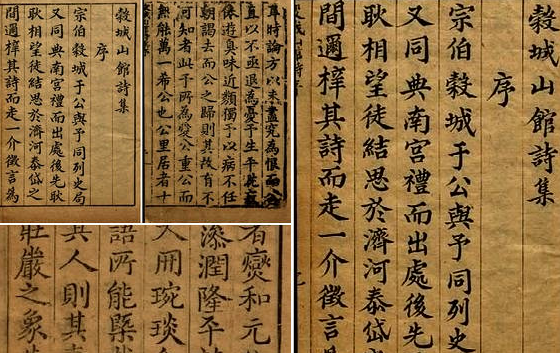 穀城山館詩集
序
宗伯穀城于公與予同列史局
又同典南宮禮而出處後先耿
耿相望徒結思於濟河泰岱之
間邇梓其詩而走一介徵言為
耳時論方以未盡究為恨而
直以不亟退為憂予生平
休遊真味近頗獨予以病不任
朝謁去而公之歸則其故有不
河知者此于所為愛公重公而
無能萬一希公也公里居者十
宗伯穀城于公與予同列史
又同典南宮禮而出處後先
耿相望徒結思於濟河泰岱
間邇梓其詩而走一介徵言
穀城山館詩集
序
者燮和元
添潤隆平
用琬琰
語所能槩
其人則其
莊嚴之象